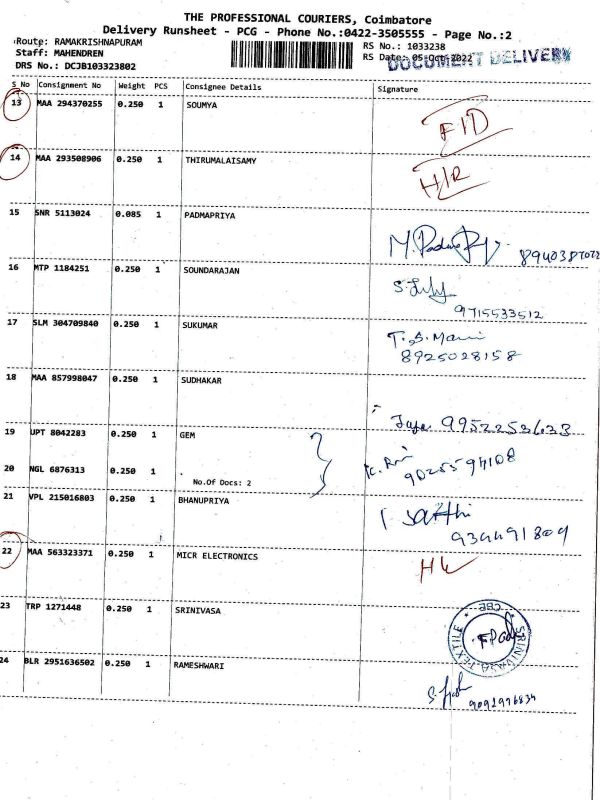 THE PROFESSIONAL COURIERS, Coimbatore
Delivery Runsheet - PCG - Phone No.:0422-3505555 - Page No.:2
Route: RAMAKRISHNAPURAM
Staff: MAHENDREN
DRS No.: DCJB103323802
RS No.: 1033238
RS Date: 05-Oct-2022
DOCUMENT DELIVERY
S No Consignment No Weight PCS Consignee Details Signature
13 MAA 294370255 0.250 1 SOUMYA
FID
14 MAA 293508906 0.250 1 THIRUMALAISAMY
H/R
15 SNR 5113024 0.085 1 PADMAPRIYA
16 MTP 1184251 0.250 1 SOUNDARAJAN
9715533512
17 SLM 304709840 0.250 1 SUKUMAR
T.S. Mani
8925028158
18 MAA 857998047 0.250 1 SUDHAKAR
19 UPT 8042283 0.250 1 GEM
20 NGL 6876313 0.250 1
No.Of Docs: 2
21 VPL 215016803 0.250 1 BHANUPRIYA
22 MAA 563323371 0.250 1 MICR ELECTRONICS
23 TRP 1271448 0.250 1 SRINIVASA
SRINIVASA TEXTILE * CBE *
24 BLR 2951636502 0.250 1 RAMESHWARI